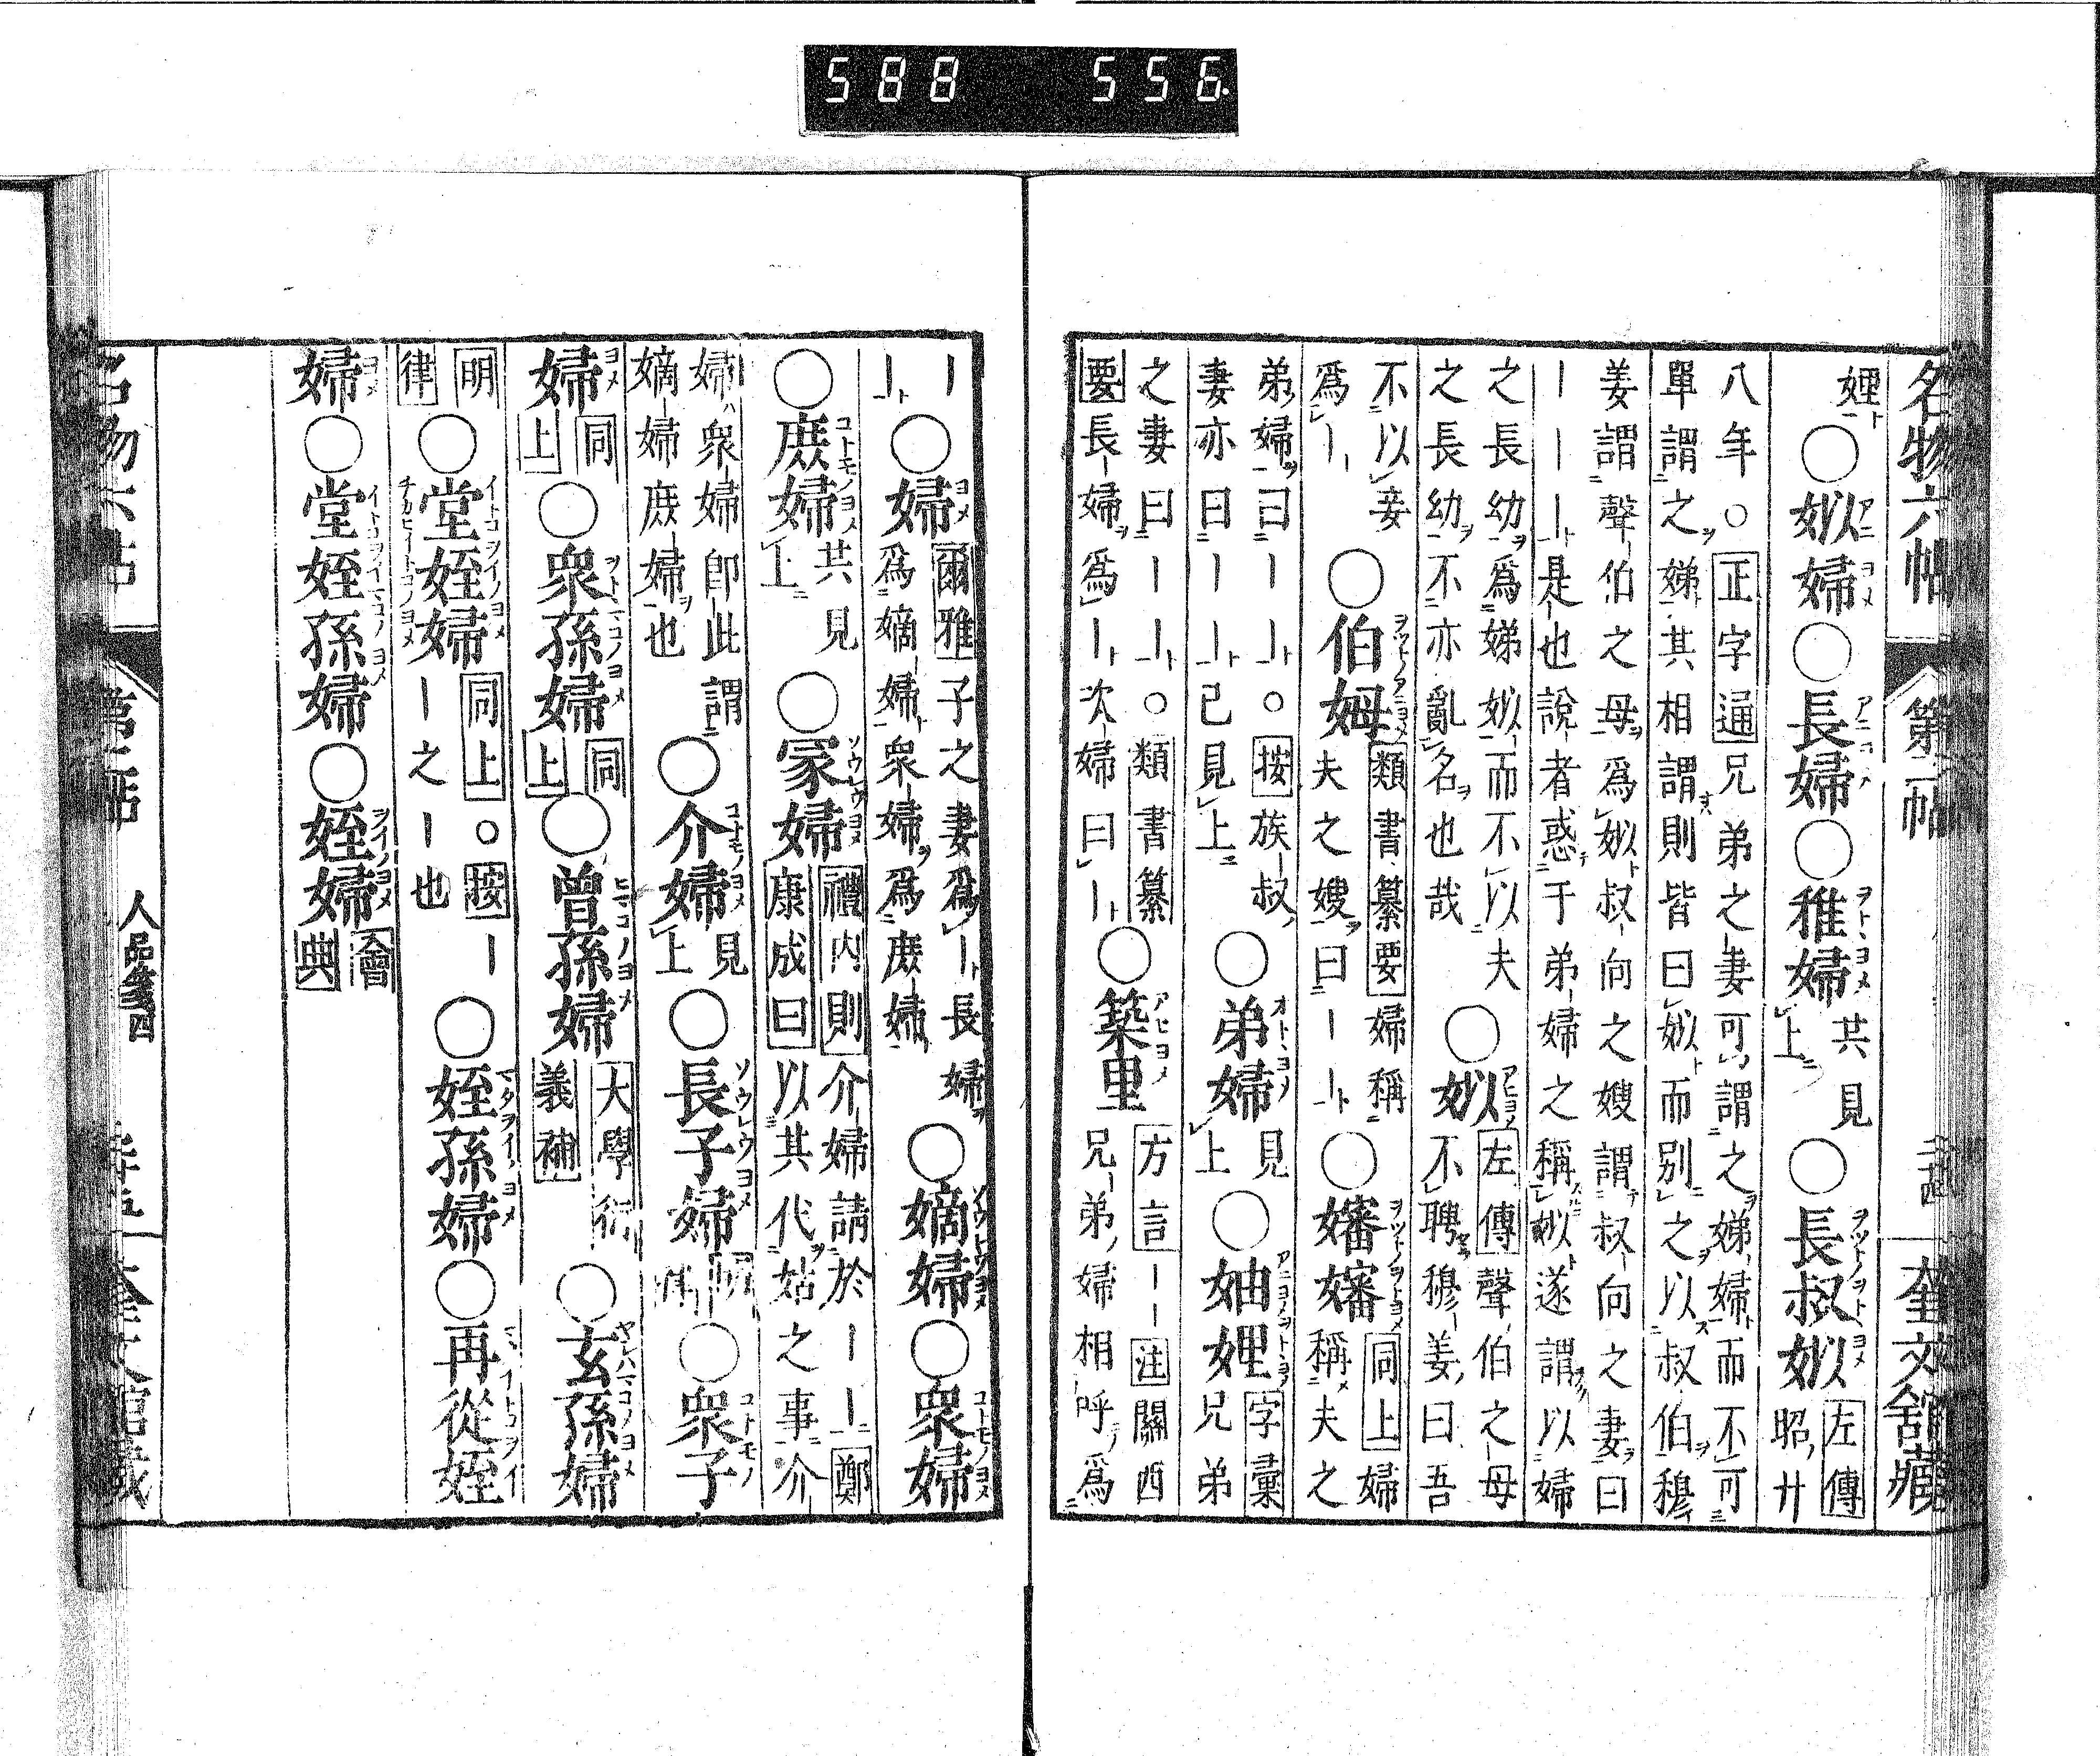 588 556
名物六帖 第二帖 二十四 奎文舘藏
娌○姒婦○長婦○稚婦共見上○長叔姒左傳昭廿
八年○正字通兄弟之妻可謂之娣婦而不可
單謂之娣其相謂則皆曰姒而別之以叔伯穆
姜謂聲伯之母爲姒叔向之嫂謂叔向之妻曰
丨丨丨是也說者惑于弟婦之稱姒遂謂以婦
之長幼爲娣姒而不以夫
之長幼不亦亂名也哉
○姒
左傳聲伯之母
不聘穆姜曰吾
不以妾
爲丨
○伯姆
類書纂要婦稱
夫之嫂曰丨丨
○嬸嬸
同上婦
稱夫之
弟婦曰丨丨○按族叔
妻亦曰丨丨已見上
○弟婦見上○妯娌
字彙
兄弟
之妻曰丨丨○類書纂
要長婦爲丨次婦曰丨
○築里
方言丨丨注關西
兄弟婦相呼爲
丨
丨
○婦
爾雅子之妻爲丨長婦
爲嫡婦衆婦爲庶婦
○嫡婦○衆婦
○庶婦共見上○冢婦
禮內則介婦請於丨丨鄭
康成曰以其代姑之事介
婦衆婦即此謂
嫡婦庶婦也
○介婦見上○長子婦明律○衆子
婦同上○衆孫婦同上○曾孫婦大學衍義補○玄孫婦
明律○堂姪婦
同上○按丨
丨之丨也
○姪孫婦○再從姪
婦○堂姪孫婦○姪婦會典
名物六帖 第二帖 人品箋四